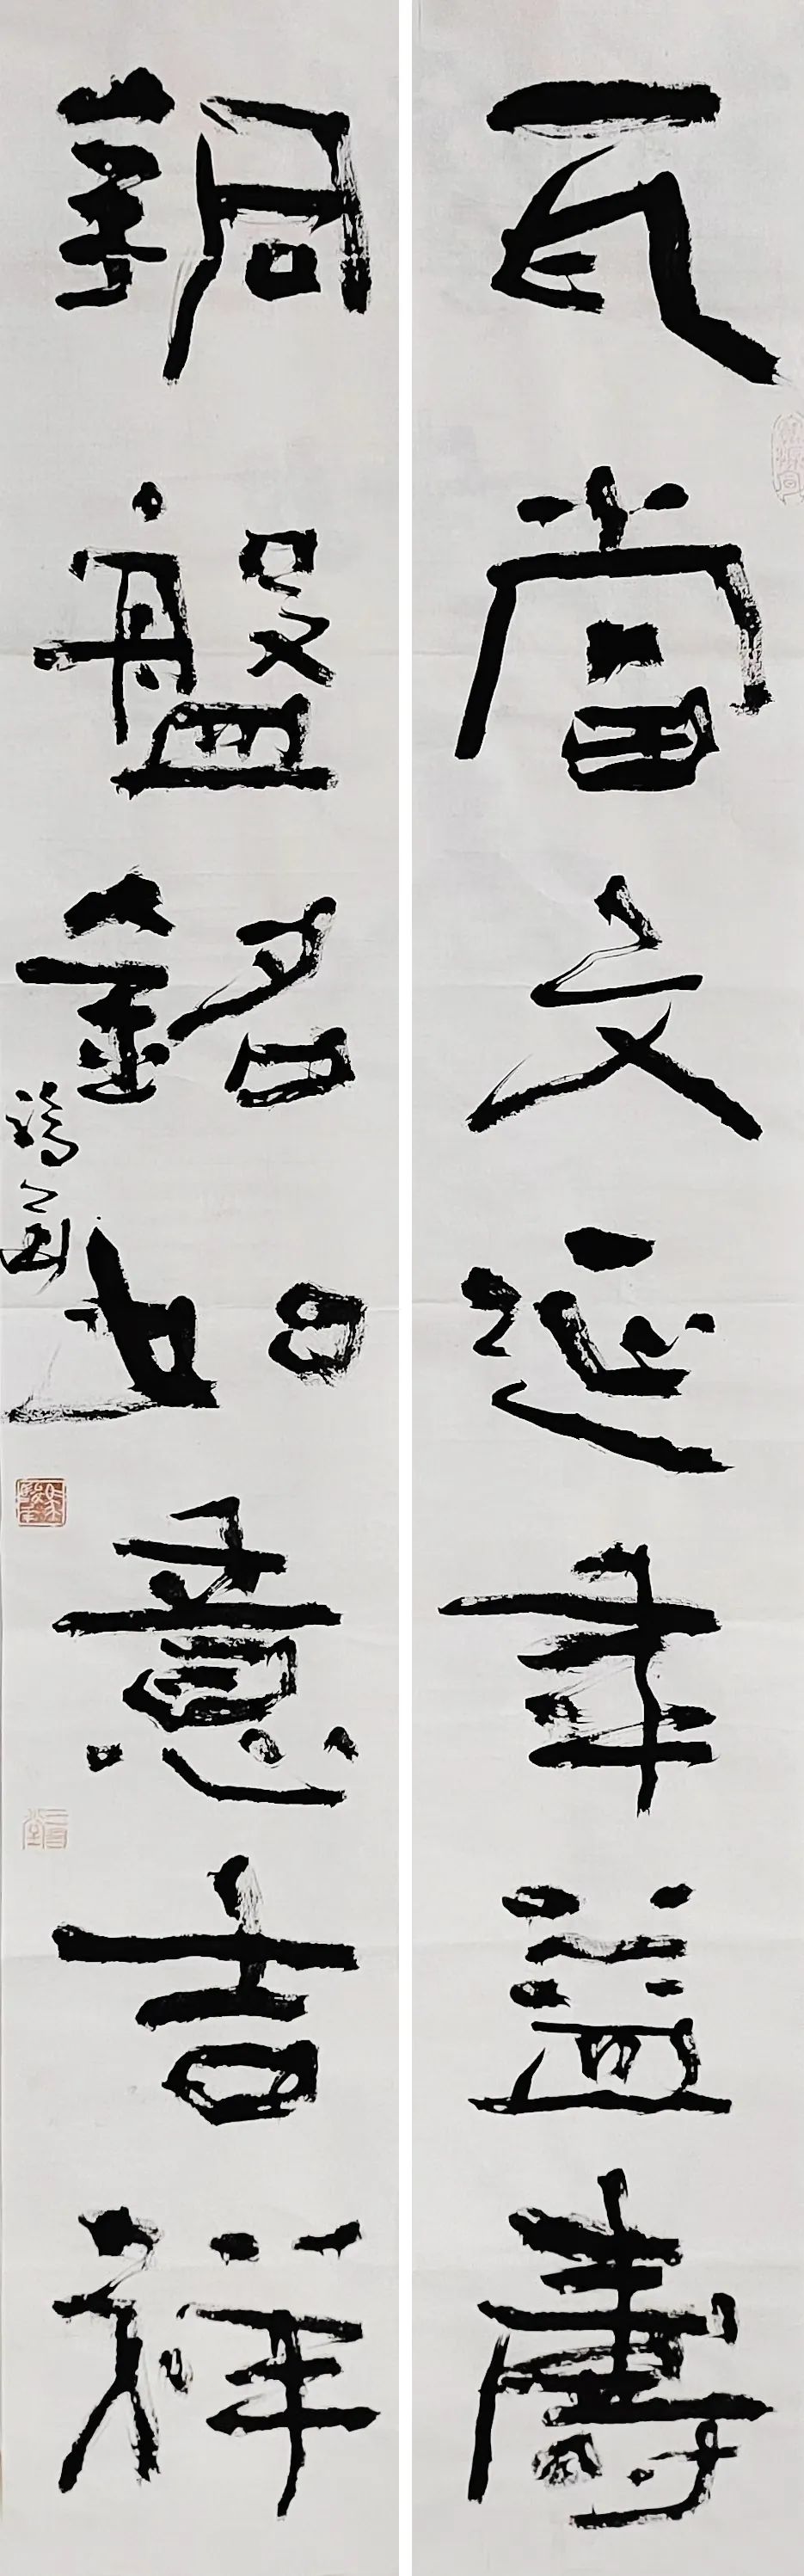 瓦當文延年益壽
銅盤銘如意吉祥